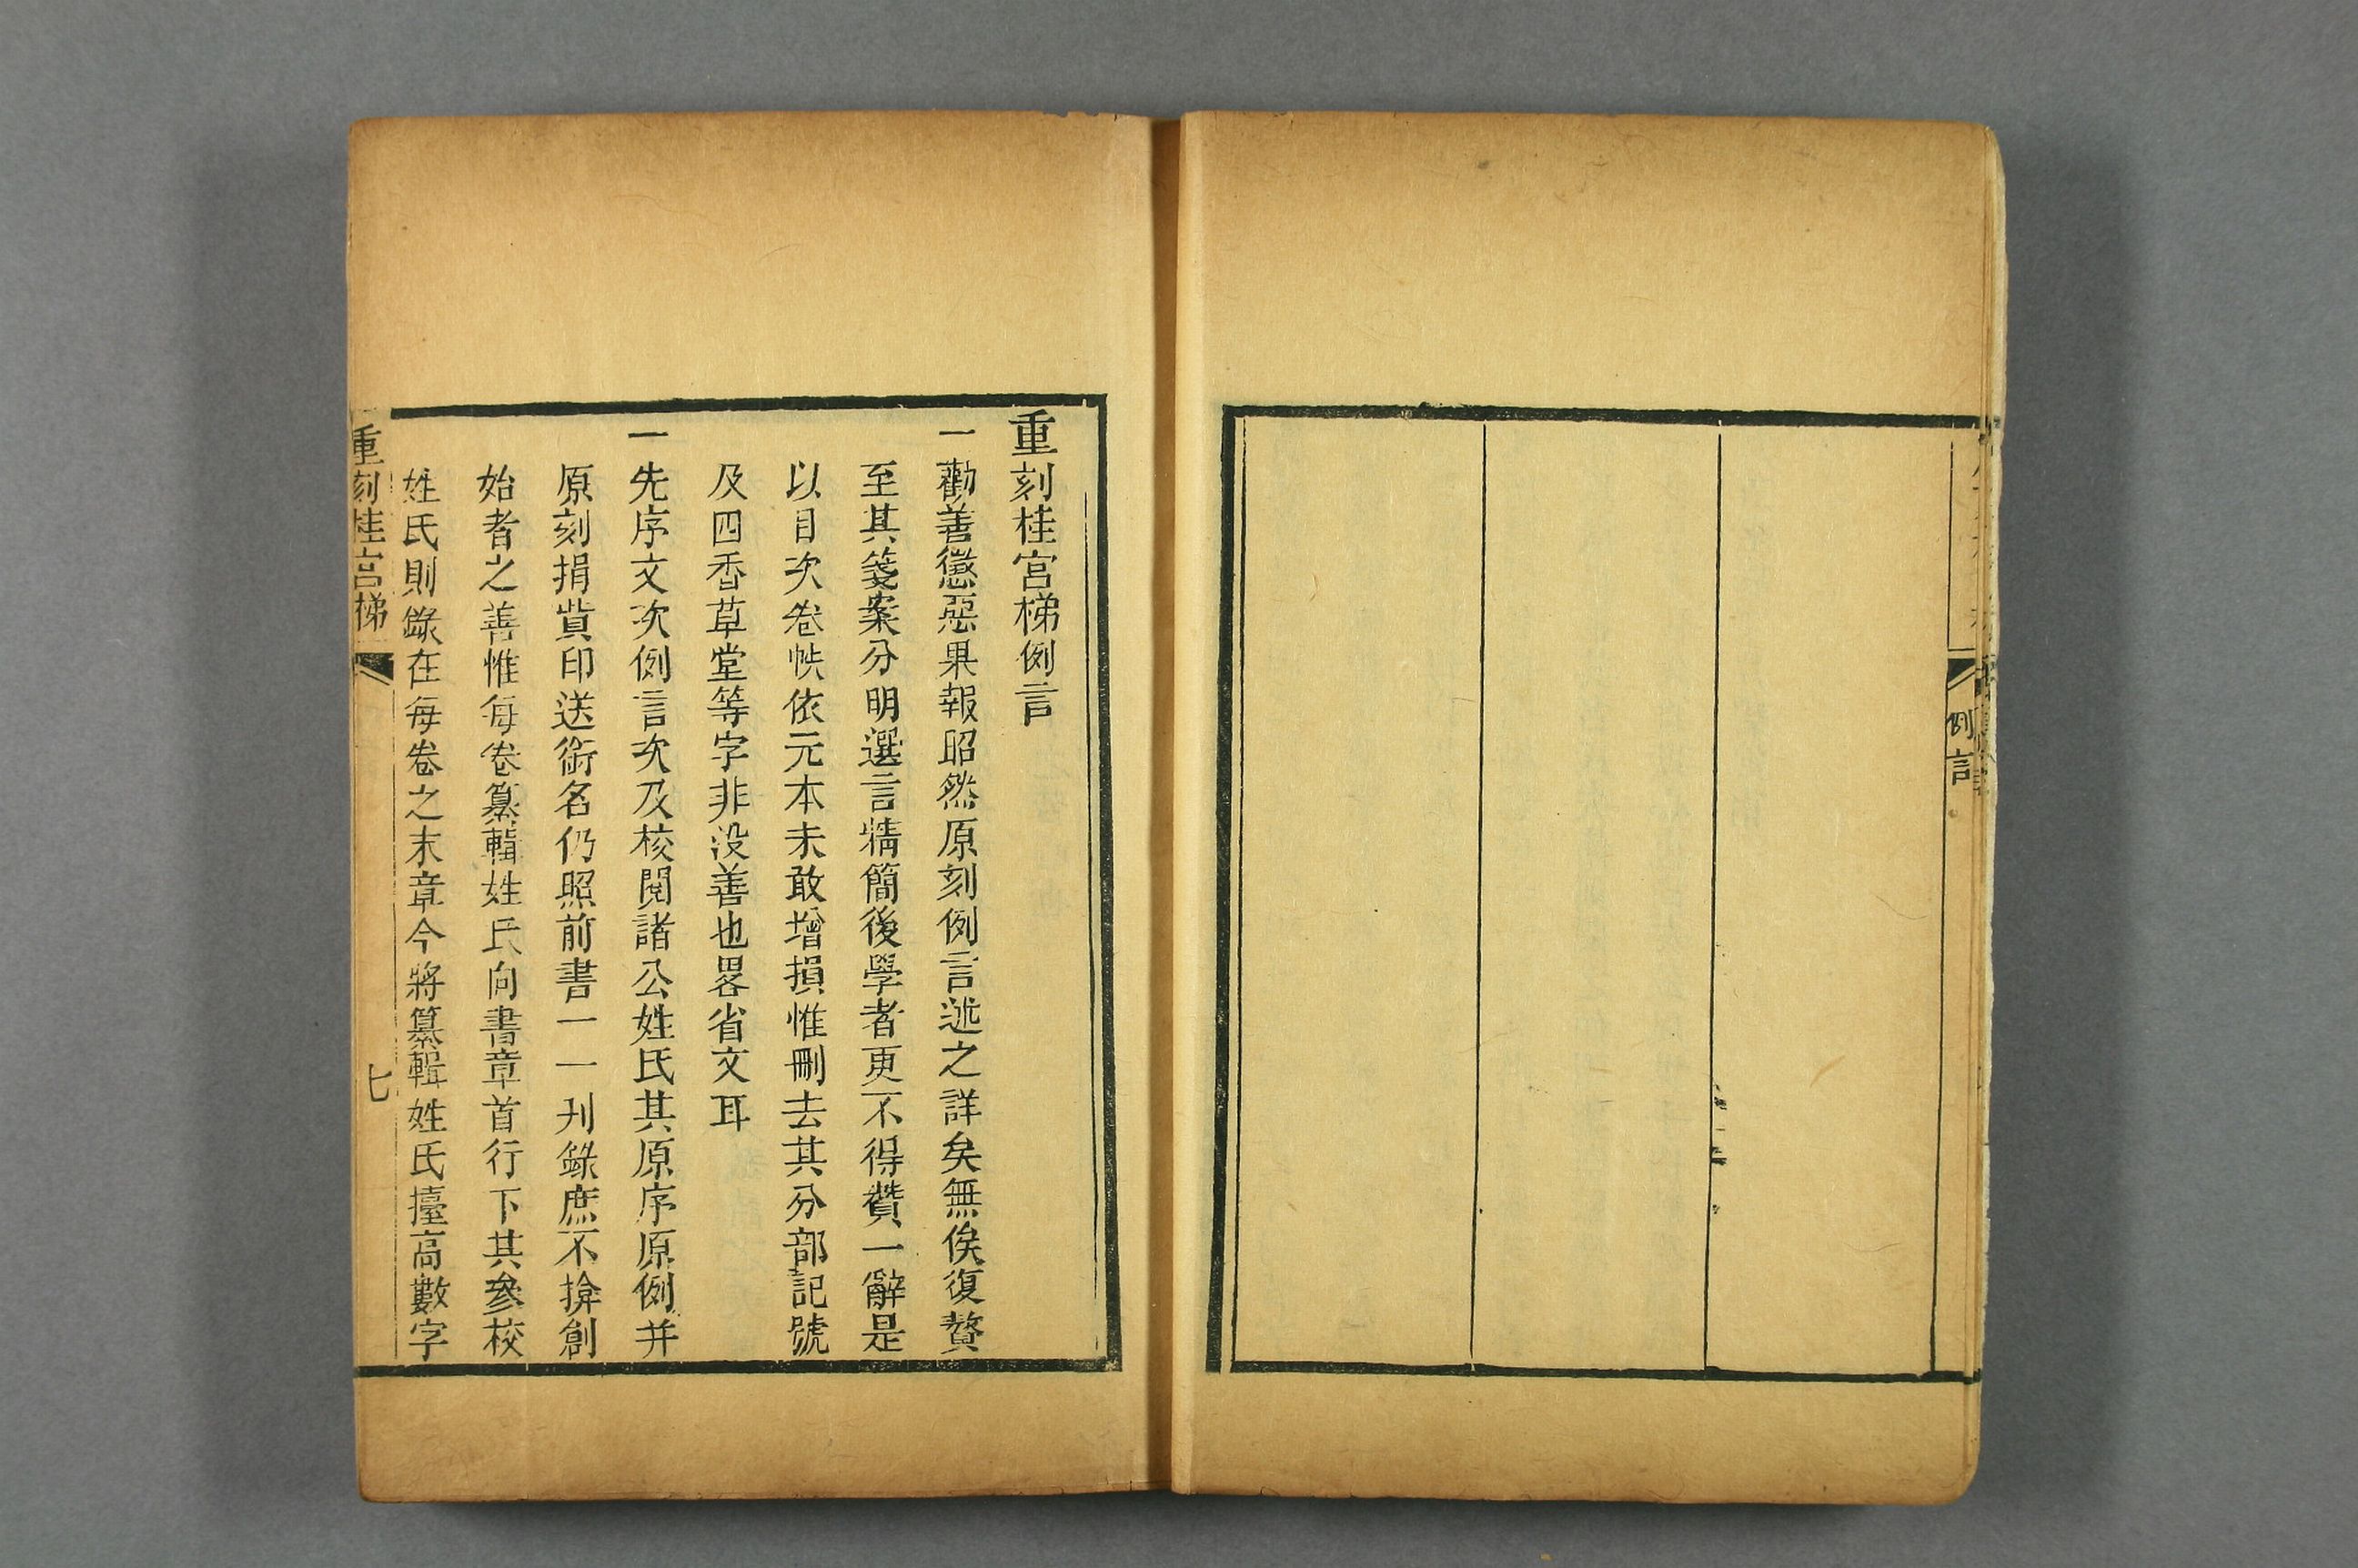 例言
重刻桂宮梯例言
一勸善懲惡果報昭然原刻例言述之詳矣無俟復贅
至其箋案分明選言精簡後學者更不得贊一辭是
以目次卷帙依元本未敢增損惟刪去其分部記號
及四香草堂等字非没善也畧省文耳
一先序文次例言次及校閱諸公姓氏其原序原例并
原刻捐貲印送銜名仍照前書一一刋錄庶不揜創
始者之善惟每卷纂輯姓氏向書章首行下其參校
姓氏則錄在每卷之末章今將纂輯姓氏擡高數字
重刻桂宮梯
七